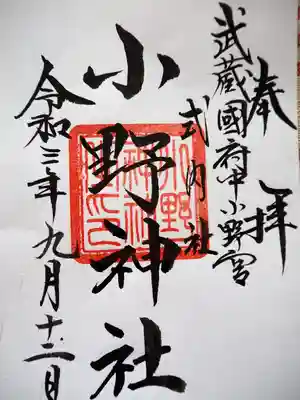 奉拝
武蔵國府中小野宮
式内社
小野神社
小野神社之印
令和三年九月十二日